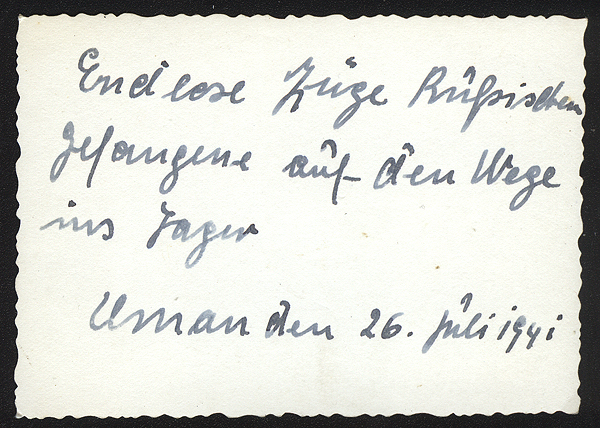 Endlose Züge Rußischen
Gefangene auf den Wege
ins Lager
Uman den 26. Juli 1941